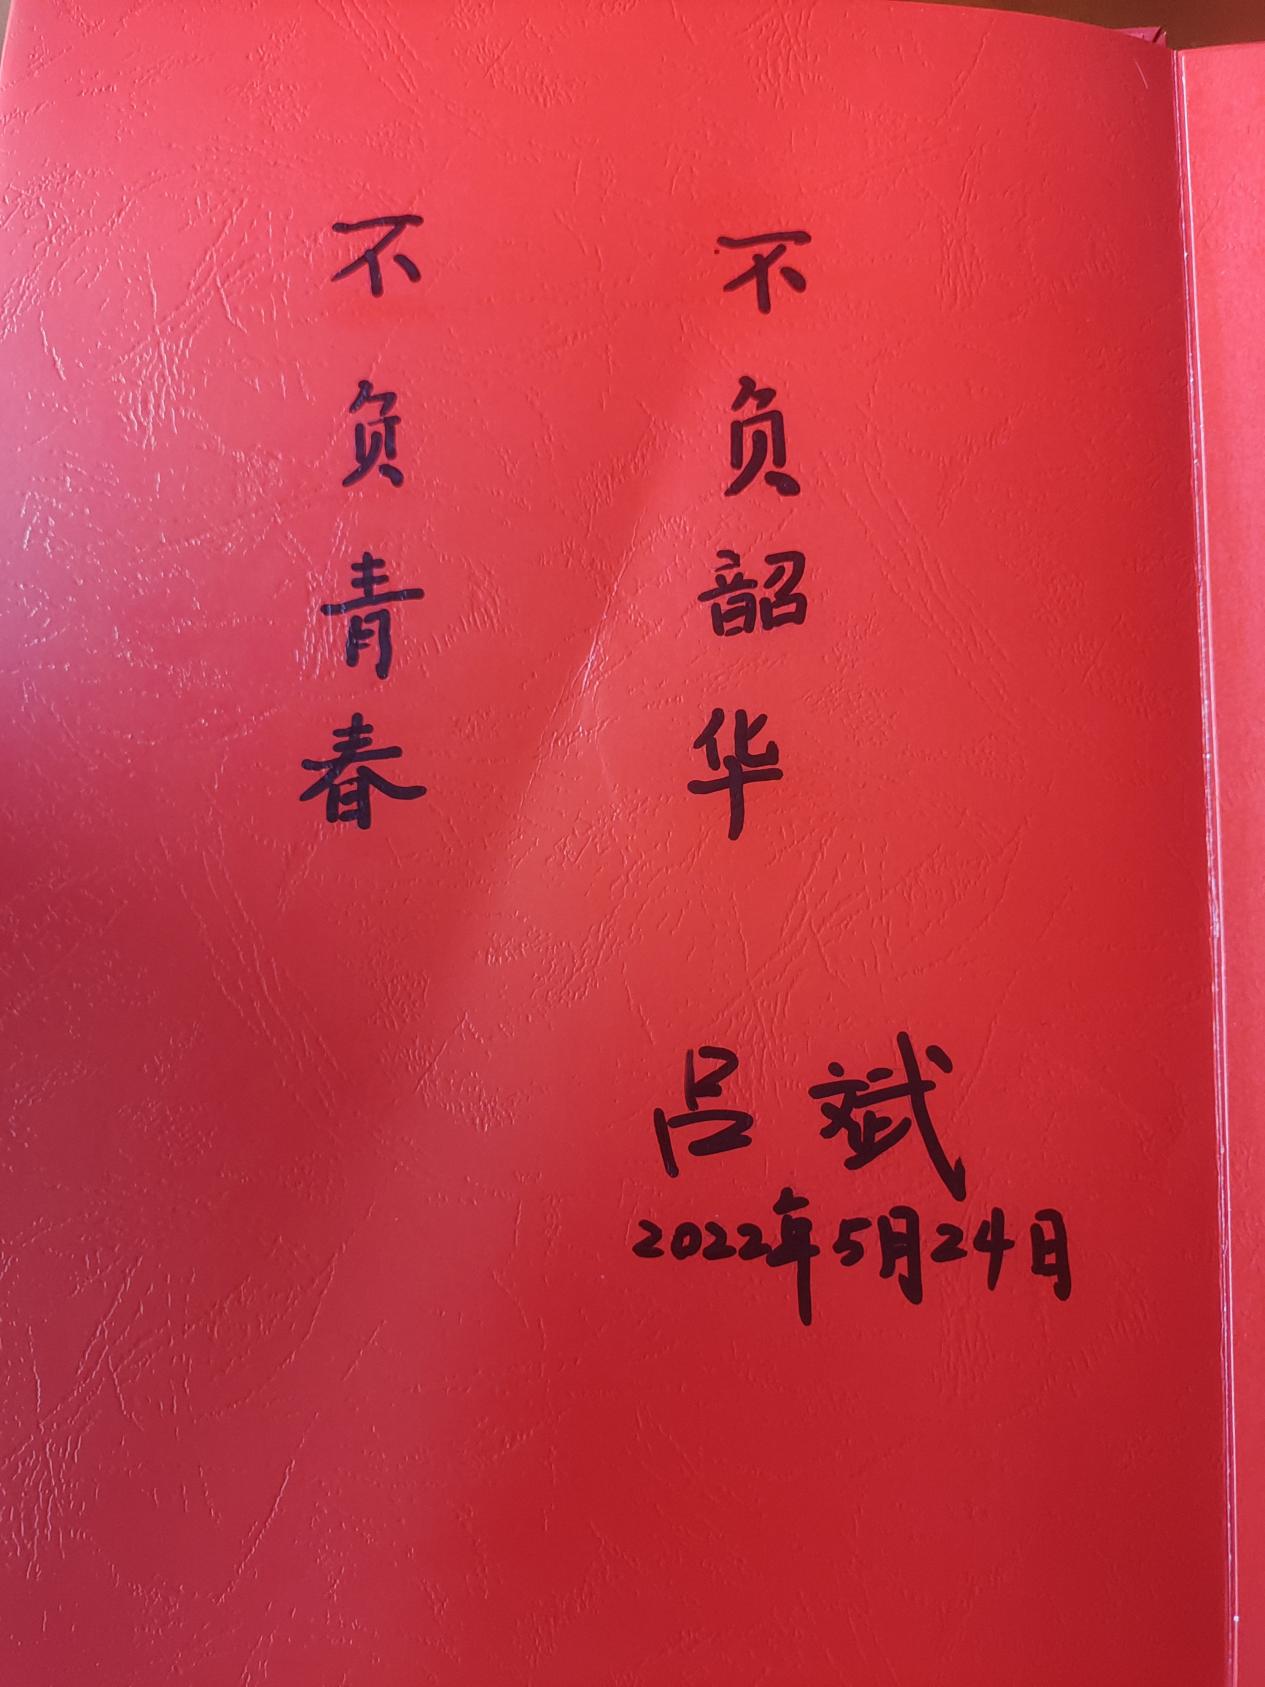 不负青春
不负韶华
吕斌
2022年5月24日